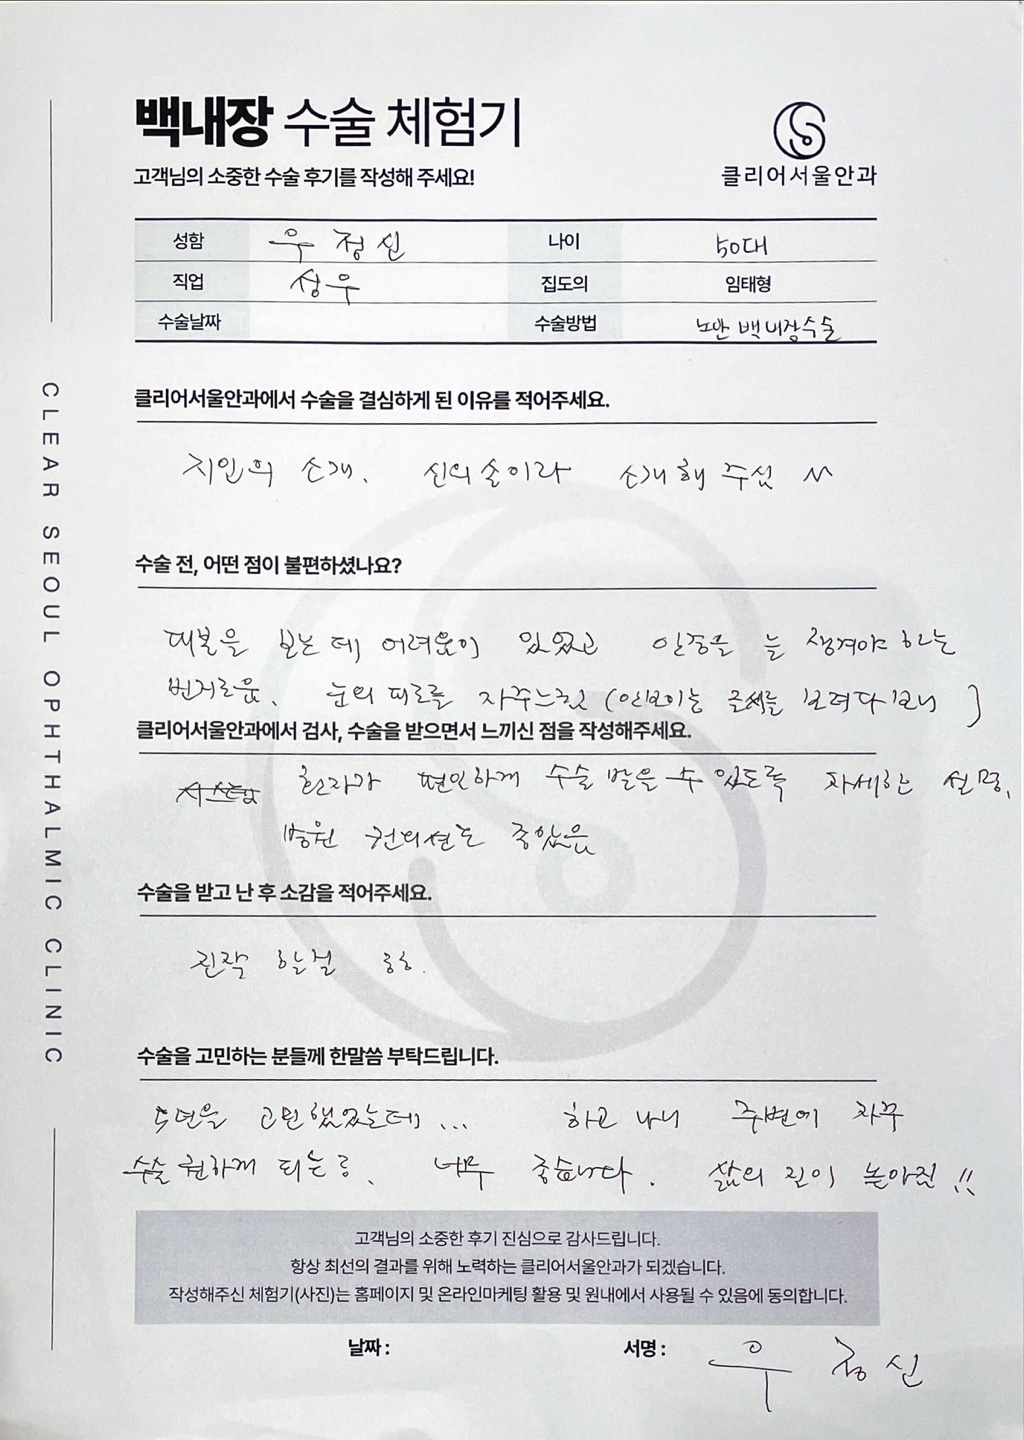 백내장 수술 체험기
고객님의 소중한 수술 후기를 작성해 주세요!
클리어서울안과
성함 우정신 나이 50대
직업 성우 집도의 임태형
수술날짜 수술방법 노안 백내장수술
CLEAR SEOUL OPHTHALMIC CLINIC
클리어서울안과에서 수술을 결심하게 된 이유를 적어주세요.
지인의 소개. 신의 손이라 소개해 주심
수술 전, 어떤 점이 불편하셨나요?
대본을 보는데 어려움이 있었고 안경을 늘 챙겨야 하는
번거로움. 눈의 피로를 자주느낌 (안보이는 글씨를 보려다보니)
클리어서울안과에서 검사, 수술을 받으면서 느끼신 점을 작성해주세요.
환자가 편안하게 수술 받을 수 있도록 자세한 설명,
병원 컨디션도 좋았음
수술을 받고 난 후 소감을 적어주세요.
진작 할걸 ㅎㅎ.
수술을 고민하는 분들께 한말씀 부탁드립니다.
5년을 고민했었는데... 하고 나니 주변에 자꾸
수술 권하게 되는 중. 너무 좋습니다. 삶의 질이 높아짐!!
고객님의 소중한 후기 진심으로 감사드립니다.
항상 최선의 결과를 위해 노력하는 클리어서울안과가 되겠습니다.
작성해주신 체험기(사진)는 홈페이지 및 온라인마케팅 활용 및 원내에서 사용될 수 있음에 동의합니다.
날짜 : 서명 : 우정신